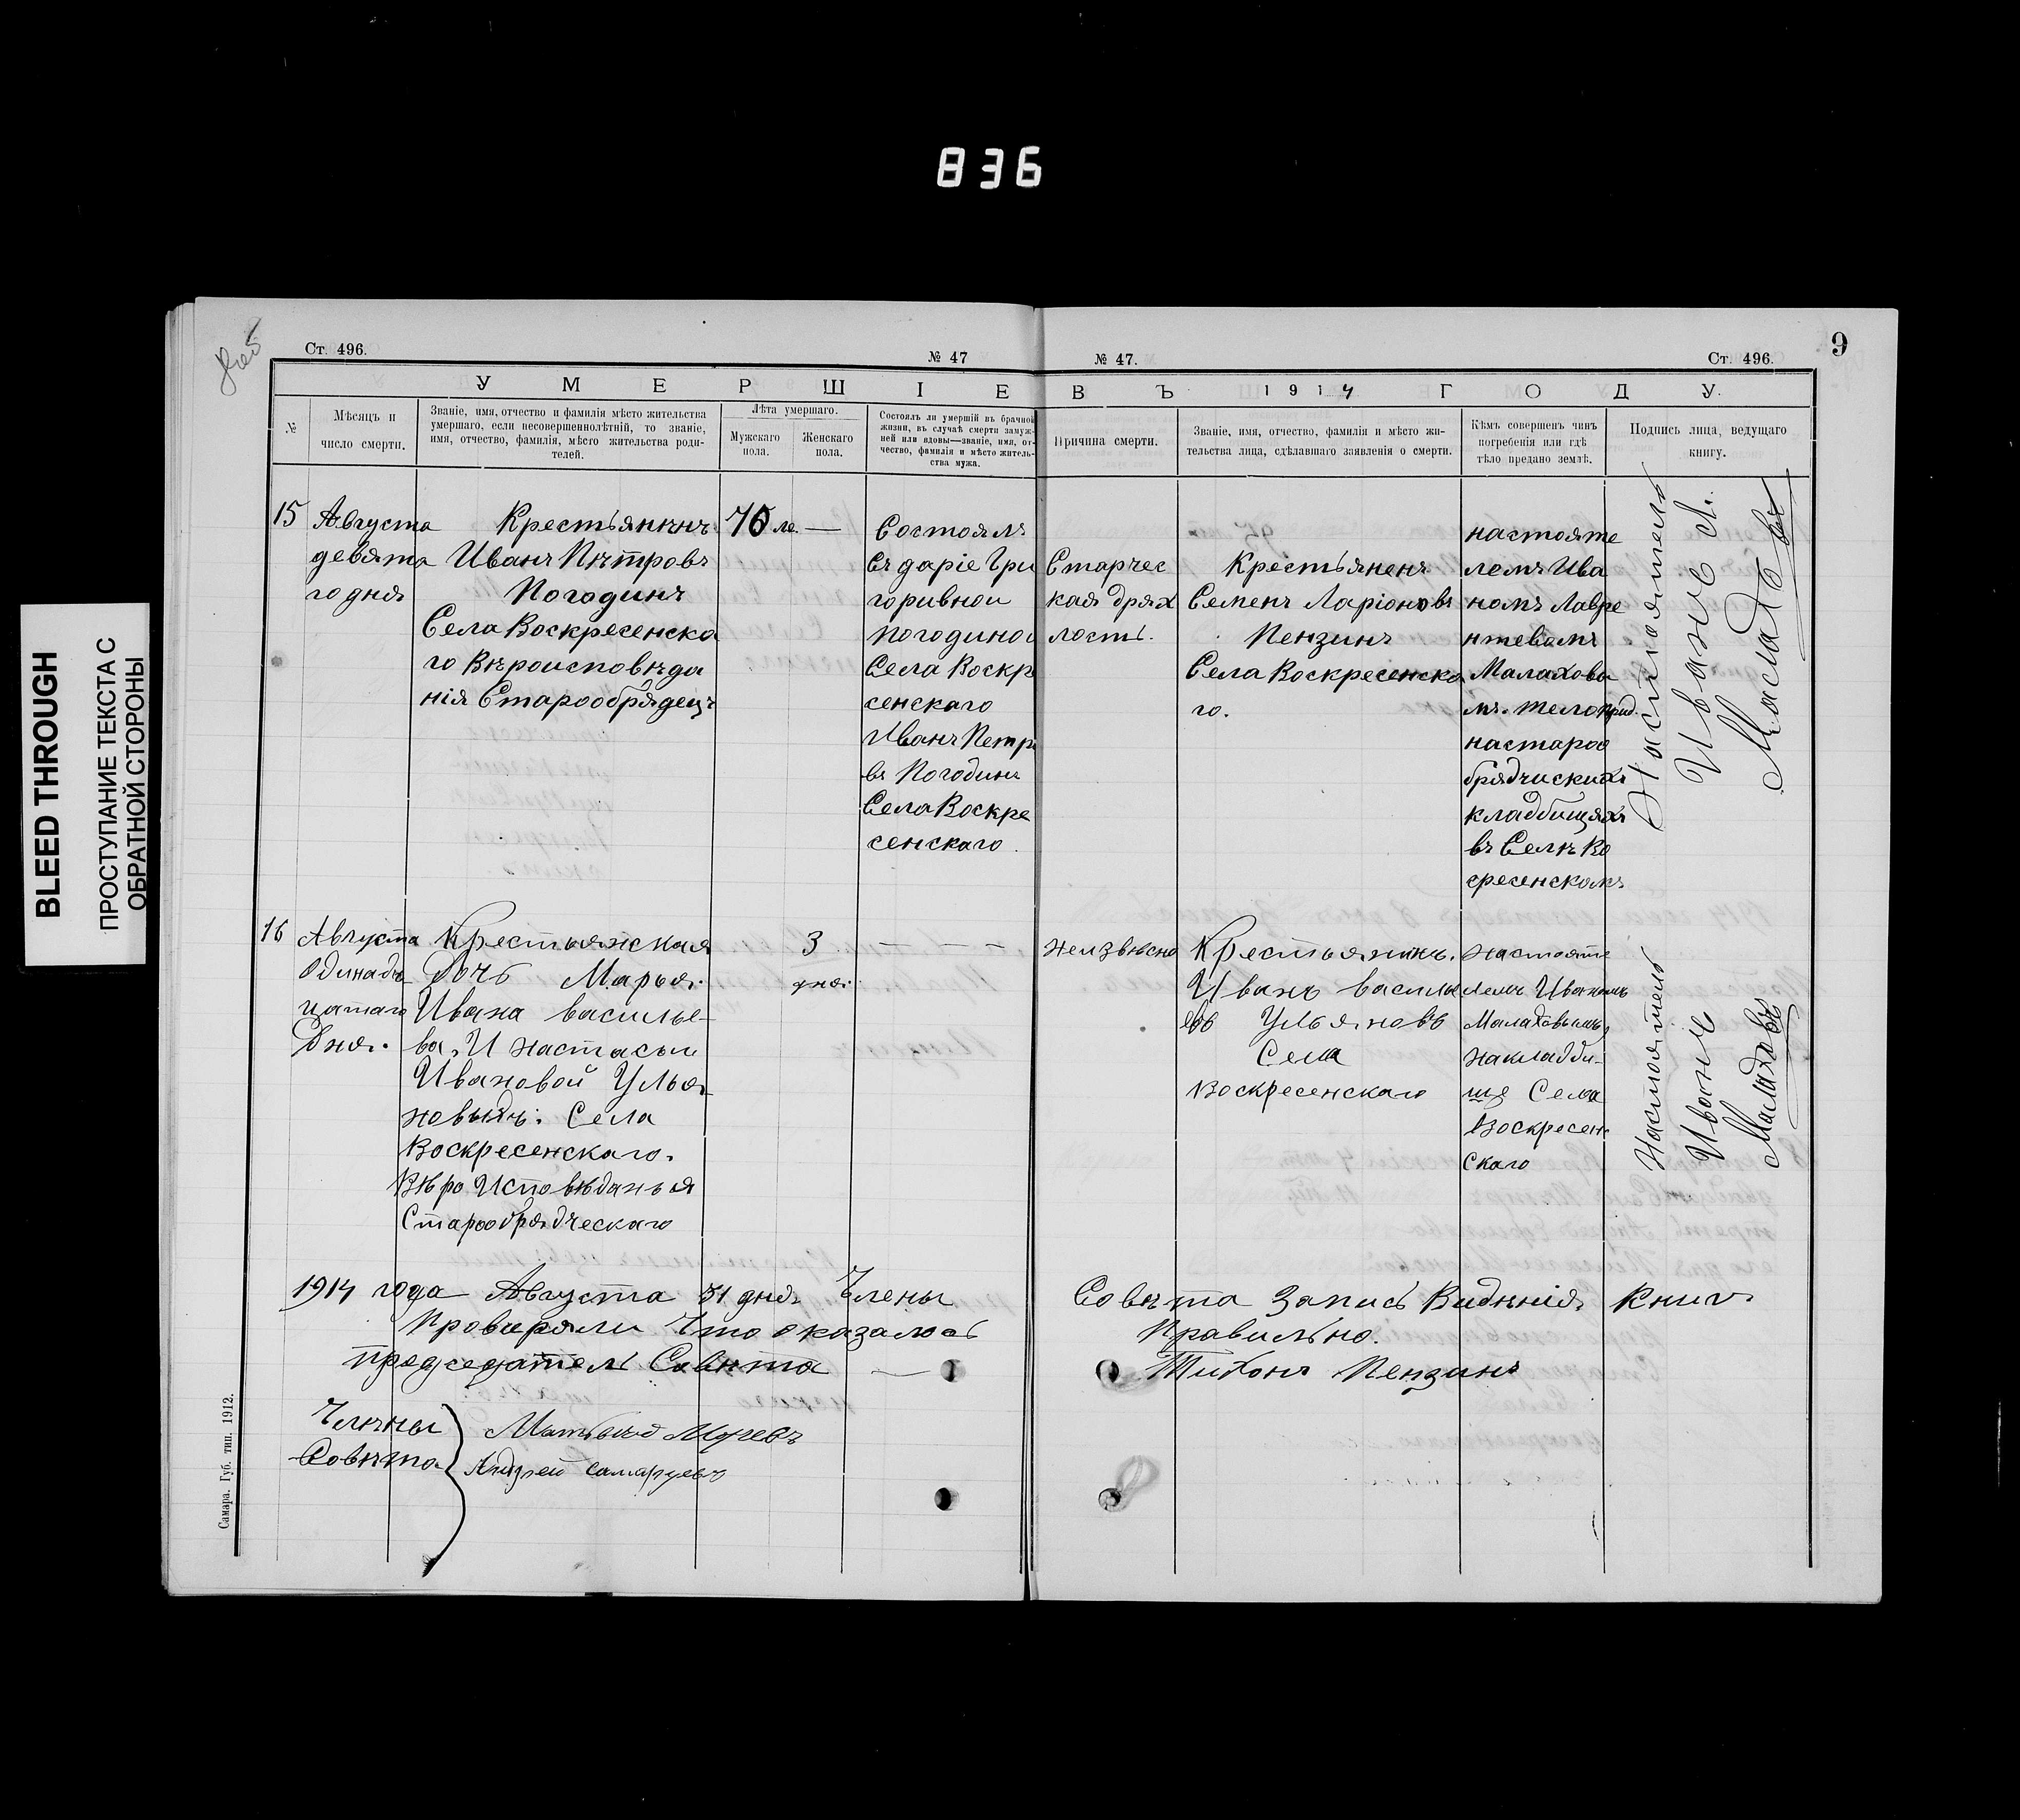 836
BLEED THROUGH
ПРОСТУПАНИЕ ТЕКСТА С
ОБРАТНОЙ СТОРОНЫ
Ст. 496.
№ 47
№ 47.
Ст. 496.
9
УМЕРШІЕ ВЪ 1914 ГОДУ.
№
Мѣсяцъ и
число смерти.
Званіе, имя, отчество и фамилія мѣсто жительства
умершаго, если несовершеннолѣтній, то званіе,
имя, отчество, фамилія, мѣсто жительства роди-
телей.
Лѣта умершаго.
Мужскаго
пола.
Женскаго
пола.
Состоялъ ли умершій въ брачной
жизни, въ случаѣ смерти замуж-
ней или вдовы—званіе, имя, от-
чество, фамилія и мѣсто житель-
ства мужа.
Причина смерти.
Званіе, имя, отчество, фамилія и мѣсто жи-
тельства лица, сдѣлавшаго заявленія о смерти.
Кѣмъ совершенъ чинъ
погребенія или гдѣ
тѣло предано землѣ.
Подпись лица, ведущаго
книгу.
15
Августа
девята
го дня
Крестьянинъ
Иванъ Пѣтровъ
Погодинъ
Села Воскресенска
го Вѣроисповѣда
нія Старообрядецъ
70 ле. —
Состоялъ
Съ даріе Гри
горивной
Погодиной
Села Воскр
сенскаго
Иванъ Петр
въ Погодинъ
Села Воскре
сенскаго.
Старчес
кая дрях
лость.
Крестьяненъ
Семенъ Ларіоновъ
Пензинъ
Села Воскресенска
го.
настояте
лемъ Ива
номъ Лавре
нтевамъ
Малахова
мъ. тело пред.
на староо
брядчискихъ
кладбищяхъ
въ Селѣ Во
сресенскомъ
Настоятель
Иване Л.
Малаховъ
16
Августа
Одинадъ-
цатаго
Дня.
Крестьянская
дочь Марья.
Ивана василье-
ва, И настасьи
Ивановой Улья-
новыхъ: Села
Воскресенскаго.
Вѣро Исповѣданья
Старообрядческаго
3
дня.
— — —
неизвѣсно
Крестьянинъ.
Иванъ василь
евъ Ульяновъ
Села
Воскресенскаго
настояте
лемъ Иваномъ
Малаховымъ,
на кладби-
ще Села
Воскресен
скаго
Настоятель
Иване
Малаховъ
1914 года Августа 31 дня Члены Совѣта Запись Видѣнія Книг
Проверяли Что оказалось Правильно.
председатель Савѣта — Тихонъ Пензинъ
Члѣны
Совѣта
Андрей Самарцевъ
Самара. Губ. тип. 1912.